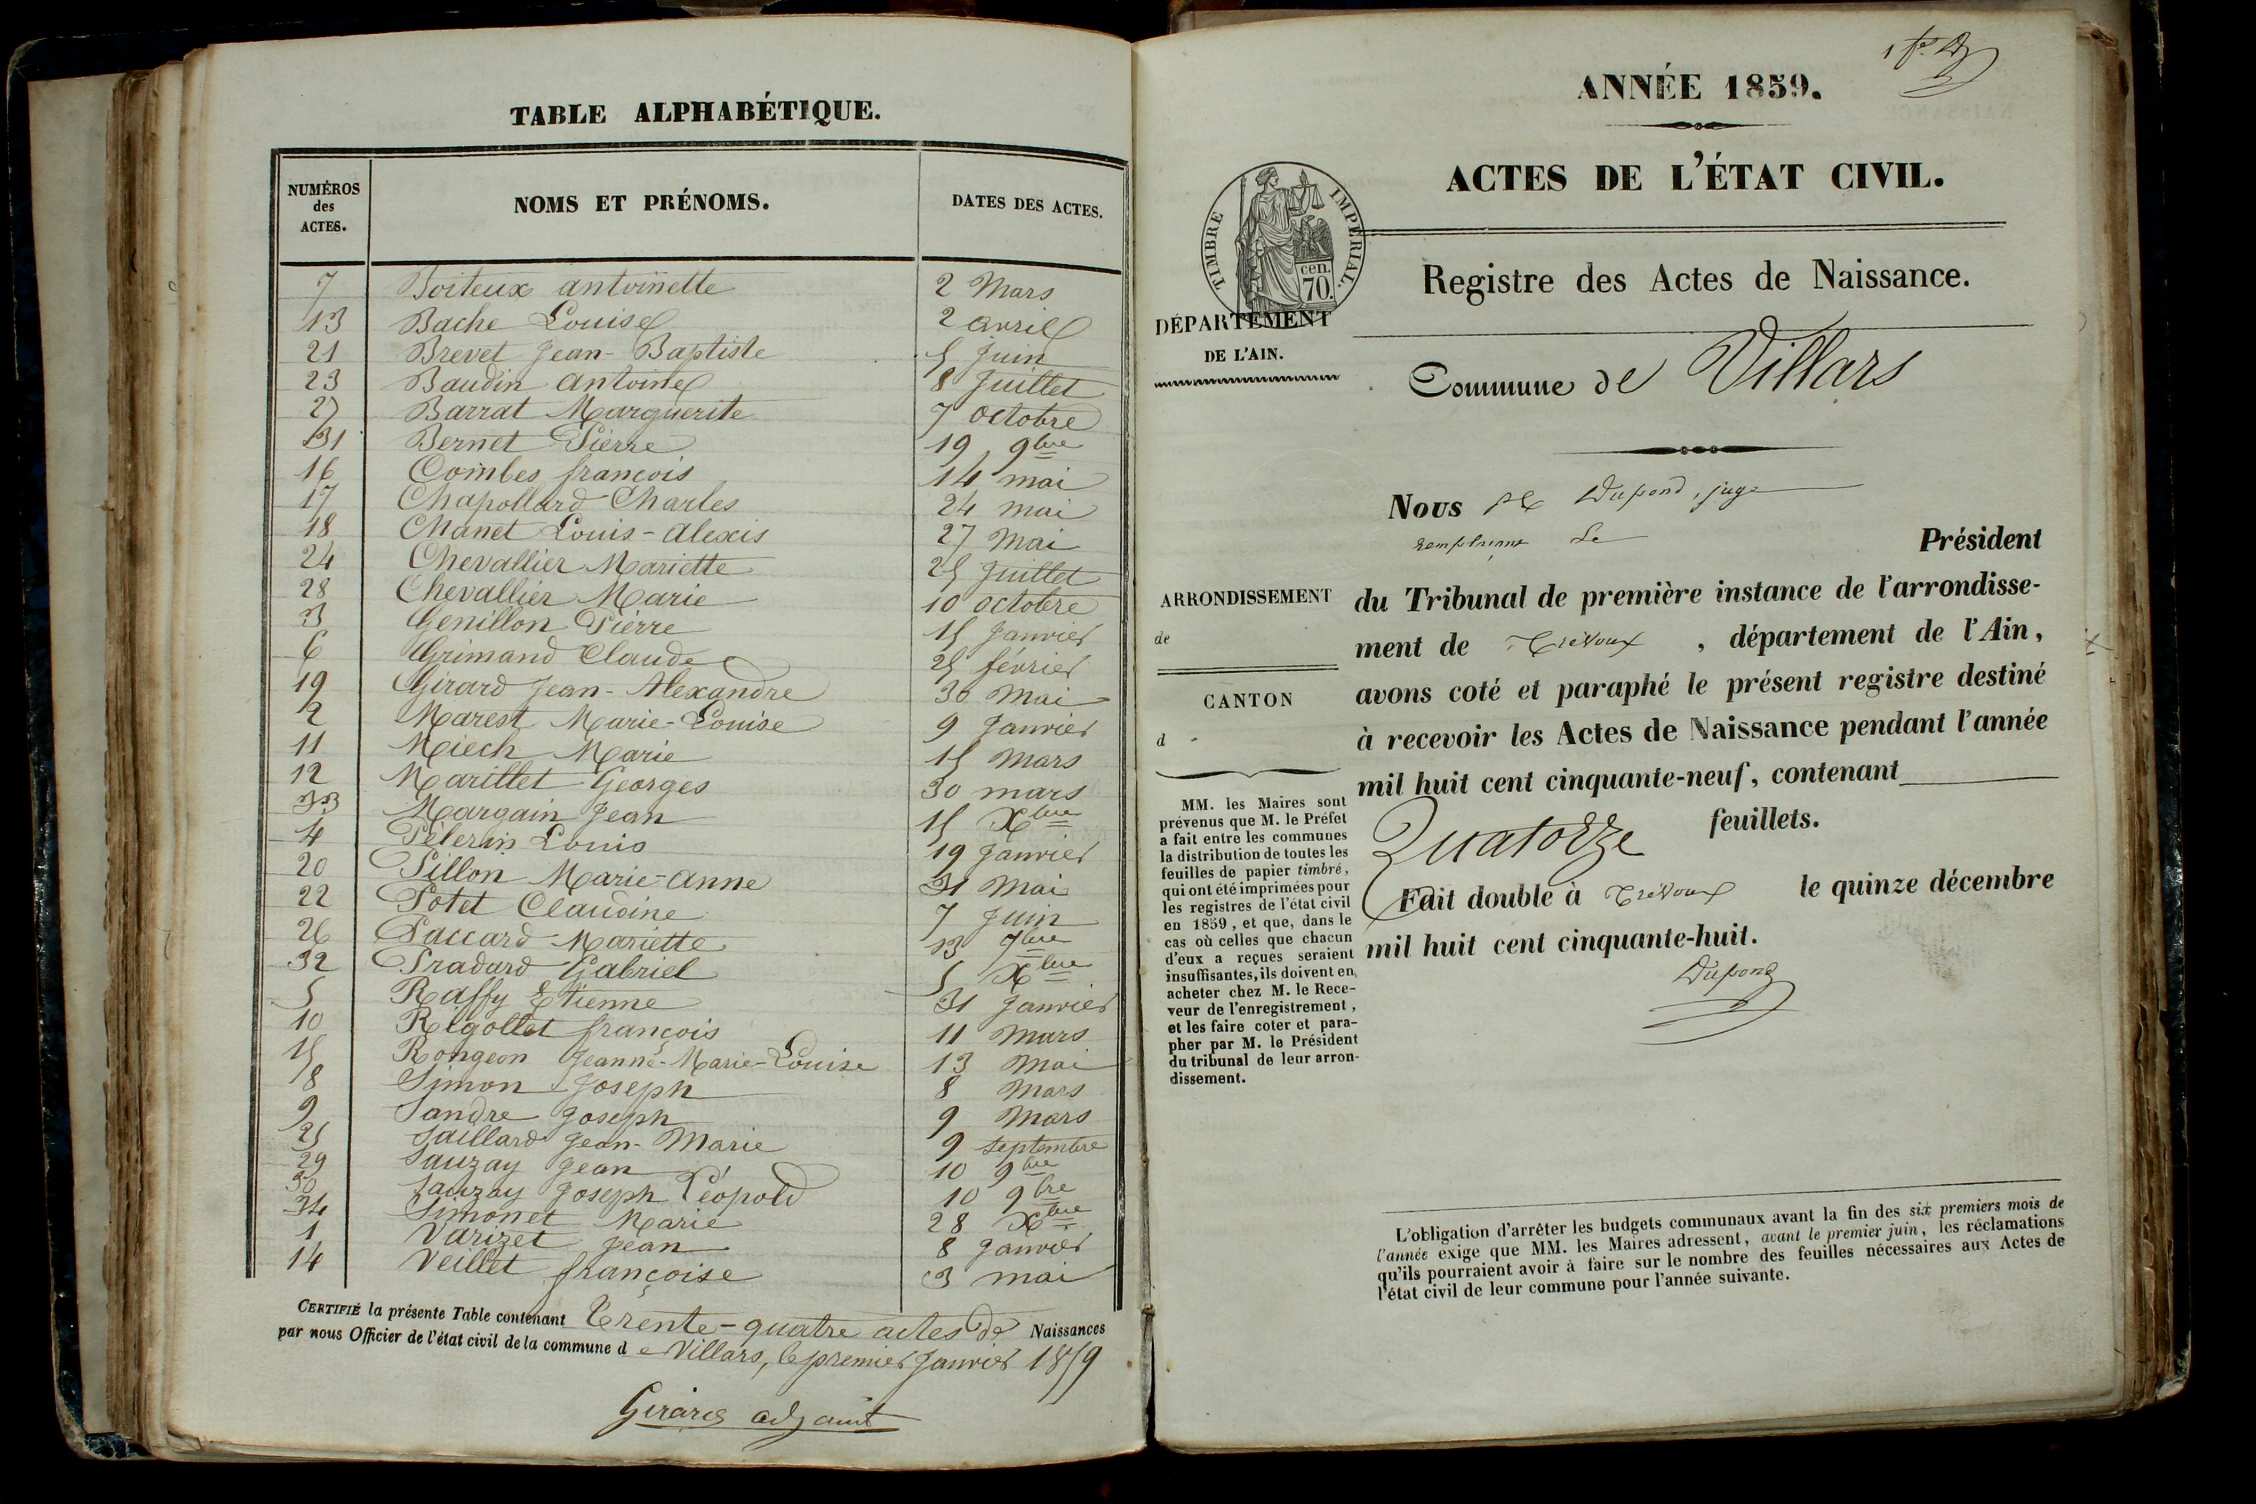 TABLE ALPHABÉTIQUE.
NUMÉROS des ACTES. NOMS ET PRÉNOMS. DATES DES ACTES.
7 Boiteux antoinette 2 Mars
13 Bache Louise 2 avril
21 Brevet Jean-Baptiste 5 Juin
23 Baudin antoine 8 Juillet
27 Barrat Marguerite 7 octobre
31 Bernet Pierre 19 9bre
16 Combes françois 14 mai
17 Chapolard Charles 24 mai
18 Chanet Louis-alexis 27 Mai
24 Chevallier Mariette 25 Juillet
28 Chevallier Marie 10 octobre
3 Genillon Pierre 15 Janvier
6 Grimand Claude 25 février
19 Girard Jean-Alexandre 30 Mai
2 Marest Marie-Louise 9 Janvier
11 Miech Marie 15 Mars
12 Marillet Georges 30 mars
33 Margain Jean 15 Xbre
4 Pèlerin Louis 19 Janvier
20 Pillon Marie-anne 31 Mai
22 Potet Claudine 7 Juin
26 Paccard Mariette 13 7bre
32 Pradard Gabriel 5 Xbre
5 Raffy Etienne 31 Janvier
10 Rigollet françois 11 Mars
15 Rongeon Jeanne-Marie-Louise 13 Mai
8 Simon Joseph 8 Mars
9 Sandre Joseph 9 Mars
25 Saillard Jean-Marie 9 septembre
29 Sauzay Jean 10 9bre
30 Sauzay Joseph Léopold 10 9bre
34 Simonet Marie 28 Xbre
1 Varizet Jean 8 Janvier
14 Veillet françoise 3 mai
CERTIFIÉ la présente Table contenant Trente-quatre actes de Naissances
par nous Officier de l'état civil de la commune d e Villars, le premier Janvier 1859
Girard adjoint
ANNÉE 1859.
ACTES DE L'ÉTAT CIVIL.
TIMBRE IMPÉRIAL.
cen.
70.
Registre des Actes de Naissance.
DÉPARTEMENT
DE L'AIN.
Commune de Villars
Nous Dupond, juge
remplaçant Le Président
du Tribunal de première instance de l'arrondisse-
ment de Trévoux , département de l'Ain,
avons coté et paraphé le présent registre destiné
à recevoir les Actes de Naissance pendant l'année
mil huit cent cinquante-neuf, contenant
Quatorze feuillets.
Fait double à Trévoux le quinze décembre
mil huit cent cinquante-huit.
Dupond
ARRONDISSEMENT
de
CANTON
d
MM. les Maires sont
prévenus que M. le Préfet
a fait entre les communes
la distribution de toutes les
feuilles de papier timbré,
qui ont été imprimées pour
les registres de l'état civil
en 1859, et que, dans le
cas où celles que chacun
d'eux a reçues seraient
insuffisantes, ils doivent en
acheter chez M. le Rece-
veur de l'enregistrement,
et les faire coter et para-
pher par M. le Président
du tribunal de leur arron-
dissement.
L'obligation d'arrêter les budgets communaux avant la fin des six premiers mois de
l'année exige que MM. les Maires adressent, avant le premier juin, les réclamations
qu'ils pourraient avoir à faire sur le nombre des feuilles nécessaires aux Actes de
l'état civil de leur commune pour l'année suivante.